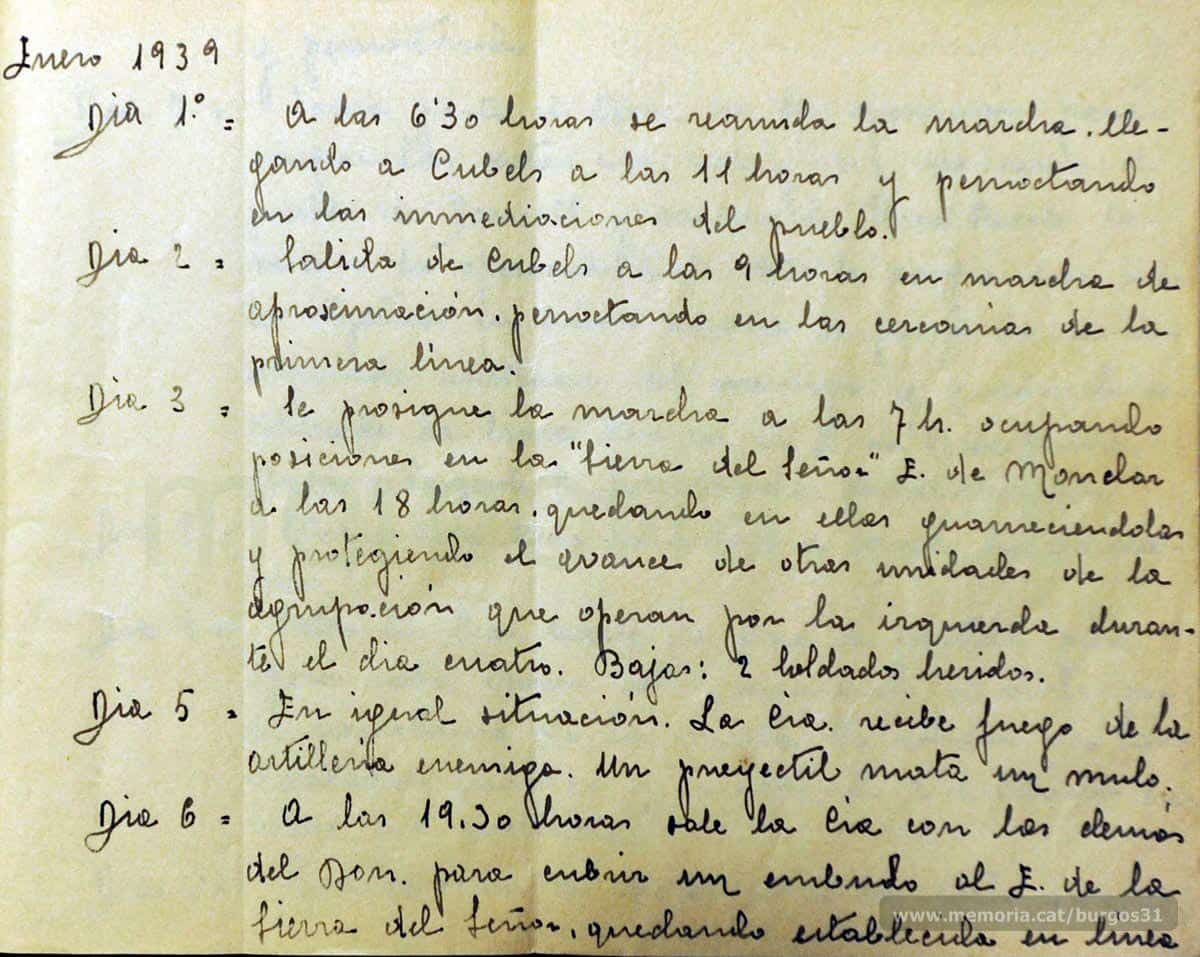 Enero 1939
Dia 1.º = A las 6'30 horas se reanuda la marcha. lle-
gando a Cubels a las 11 horas y pernoctando
en las inmediaciones del pueblo.
Dia 2 = Salida de Cubels a las 9 horas en marcha de
aproximación. pernoctando en las cercanias de la
primera línea.
Dia 3 = Se prosigue la marcha a las 7 h. ocupando
posiciones en la "Sierra del Señor" E. de Monclar
a las 18 horas. quedando en ellas guarneciendolas
y protegiendo el avance de otras unidades de la
agrupación que operan por la izquierda duran-
te el dia cuatro. Bajas: 2 Soldados heridos.
Dia 5 = En igual situación. La Cia. recibe fuego de la
artilleria enemiga. Un proyectil mata un mulo.
Dia 6 = A las 19.30 horas sale la Cia con las demás
del Bon. para cubrir un embudo al E. de la
Sierra del Señor. quedando establecida en linea
www.memoria.cat/burgos31